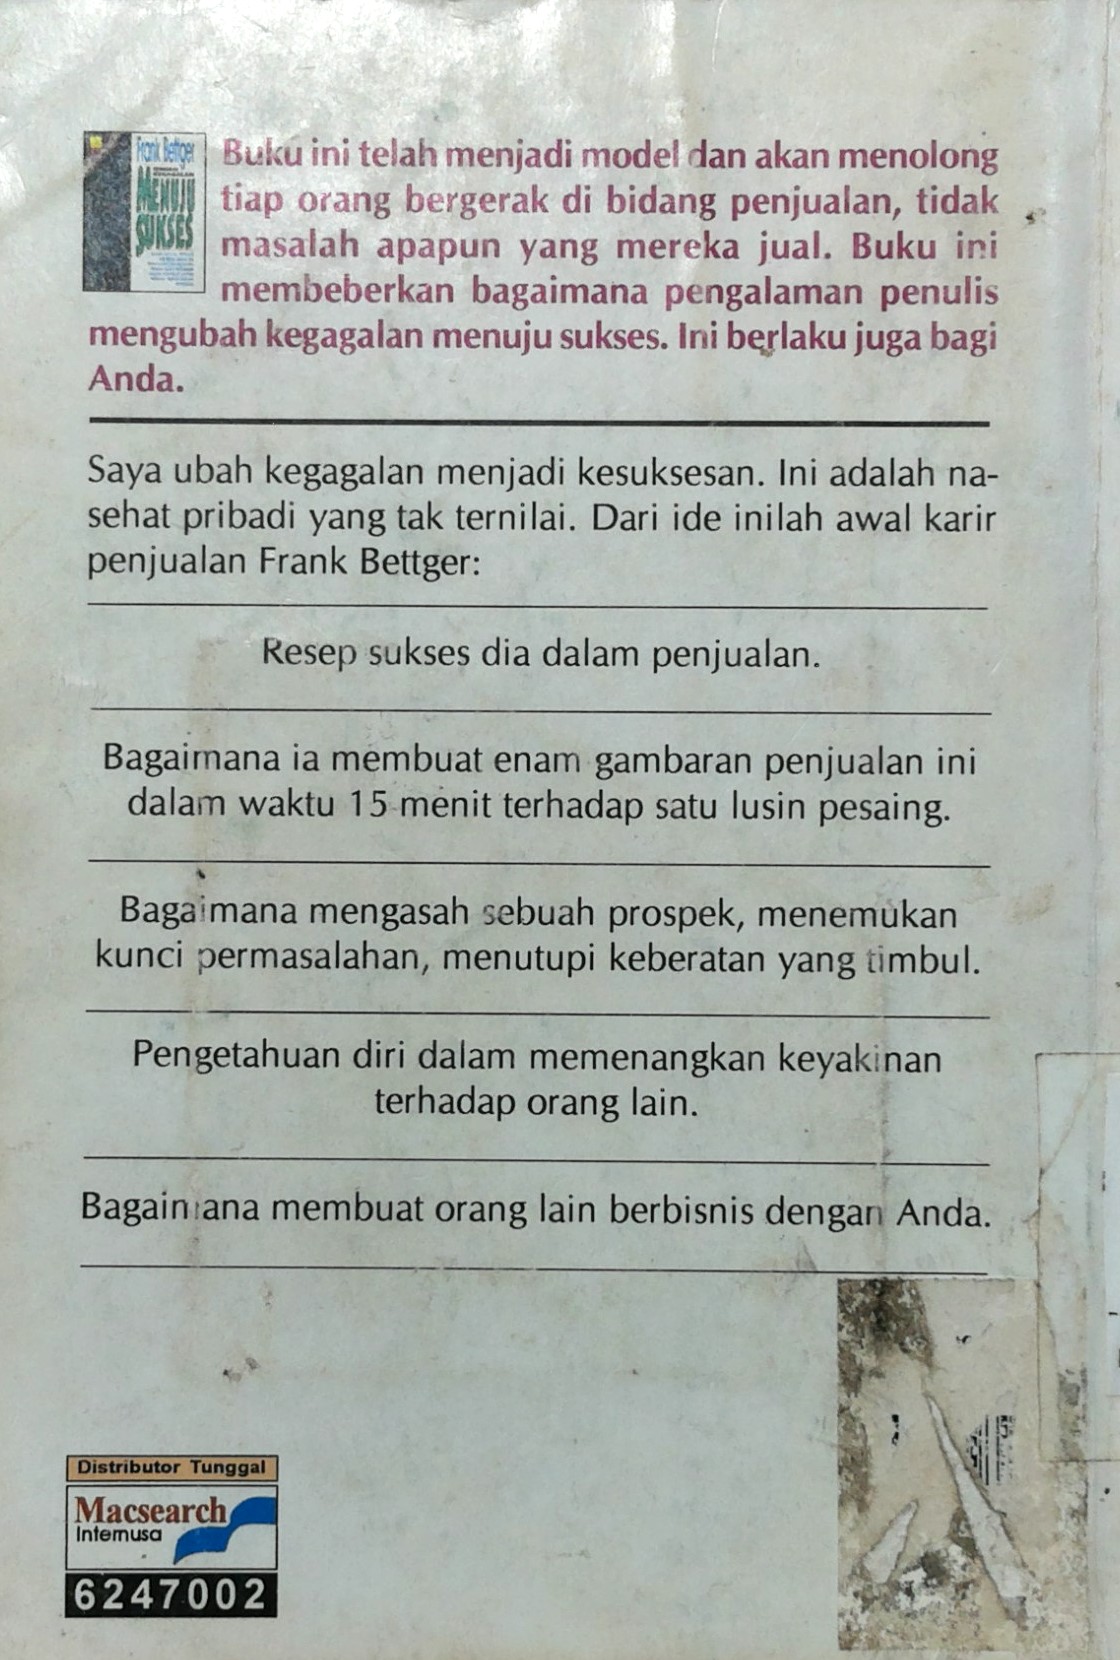 Frank Bettger
MENUJU
SUKSES
Buku ini telah menjadi model dan akan menolong
tiap orang bergerak di bidang penjualan, tidak
masalah apapun yang mereka jual. Buku ini
membeberkan bagaimana pengalaman penulis
mengubah kegagalan menuju sukses. Ini berlaku juga bagi
Anda.
Saya ubah kegagalan menjadi kesuksesan. Ini adalah na-
sehat pribadi yang tak ternilai. Dari ide inilah awal karir
penjualan Frank Bettger:
Resep sukses dia dalam penjualan.
Bagaimana ia membuat enam gambaran penjualan ini
dalam waktu 15 menit terhadap satu lusin pesaing.
Bagaimana mengasah sebuah prospek, menemukan
kunci permasalahan, menutupi keberatan yang timbul.
Pengetahuan diri dalam memenangkan keyakinan
terhadap orang lain.
Bagaimana membuat orang lain berbisnis dengan Anda.
Distributor Tunggal
Macsearch
Internusa
6247002